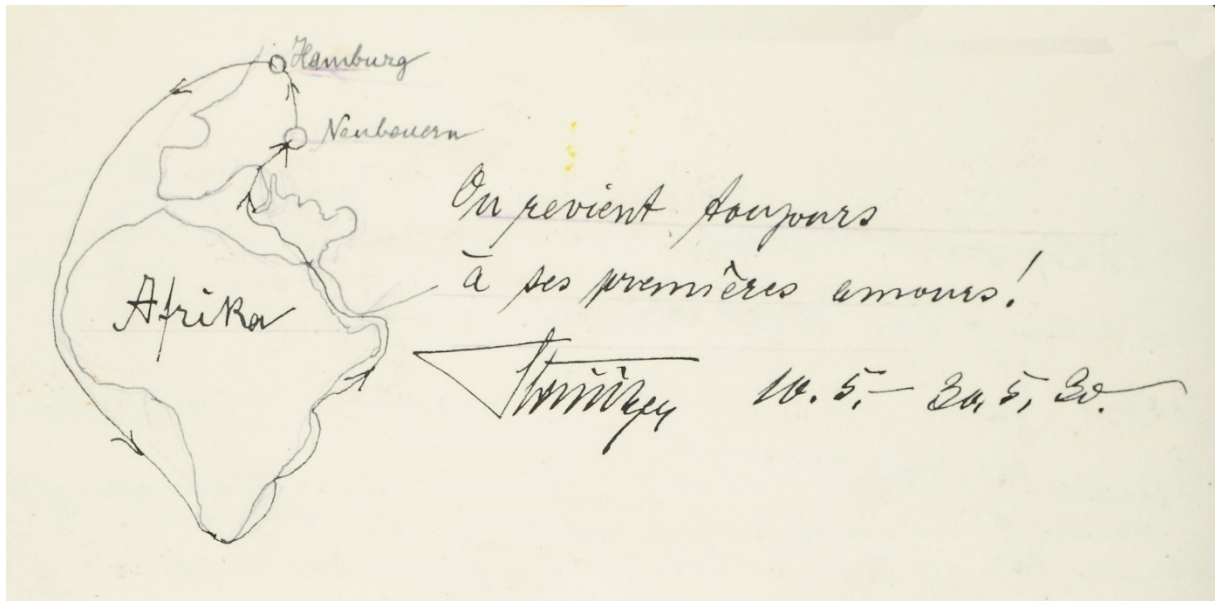 Hamburg
Neubeuern
On revient toujours
à ses premières amours!
Afrika
10.5.- 30.5.30.